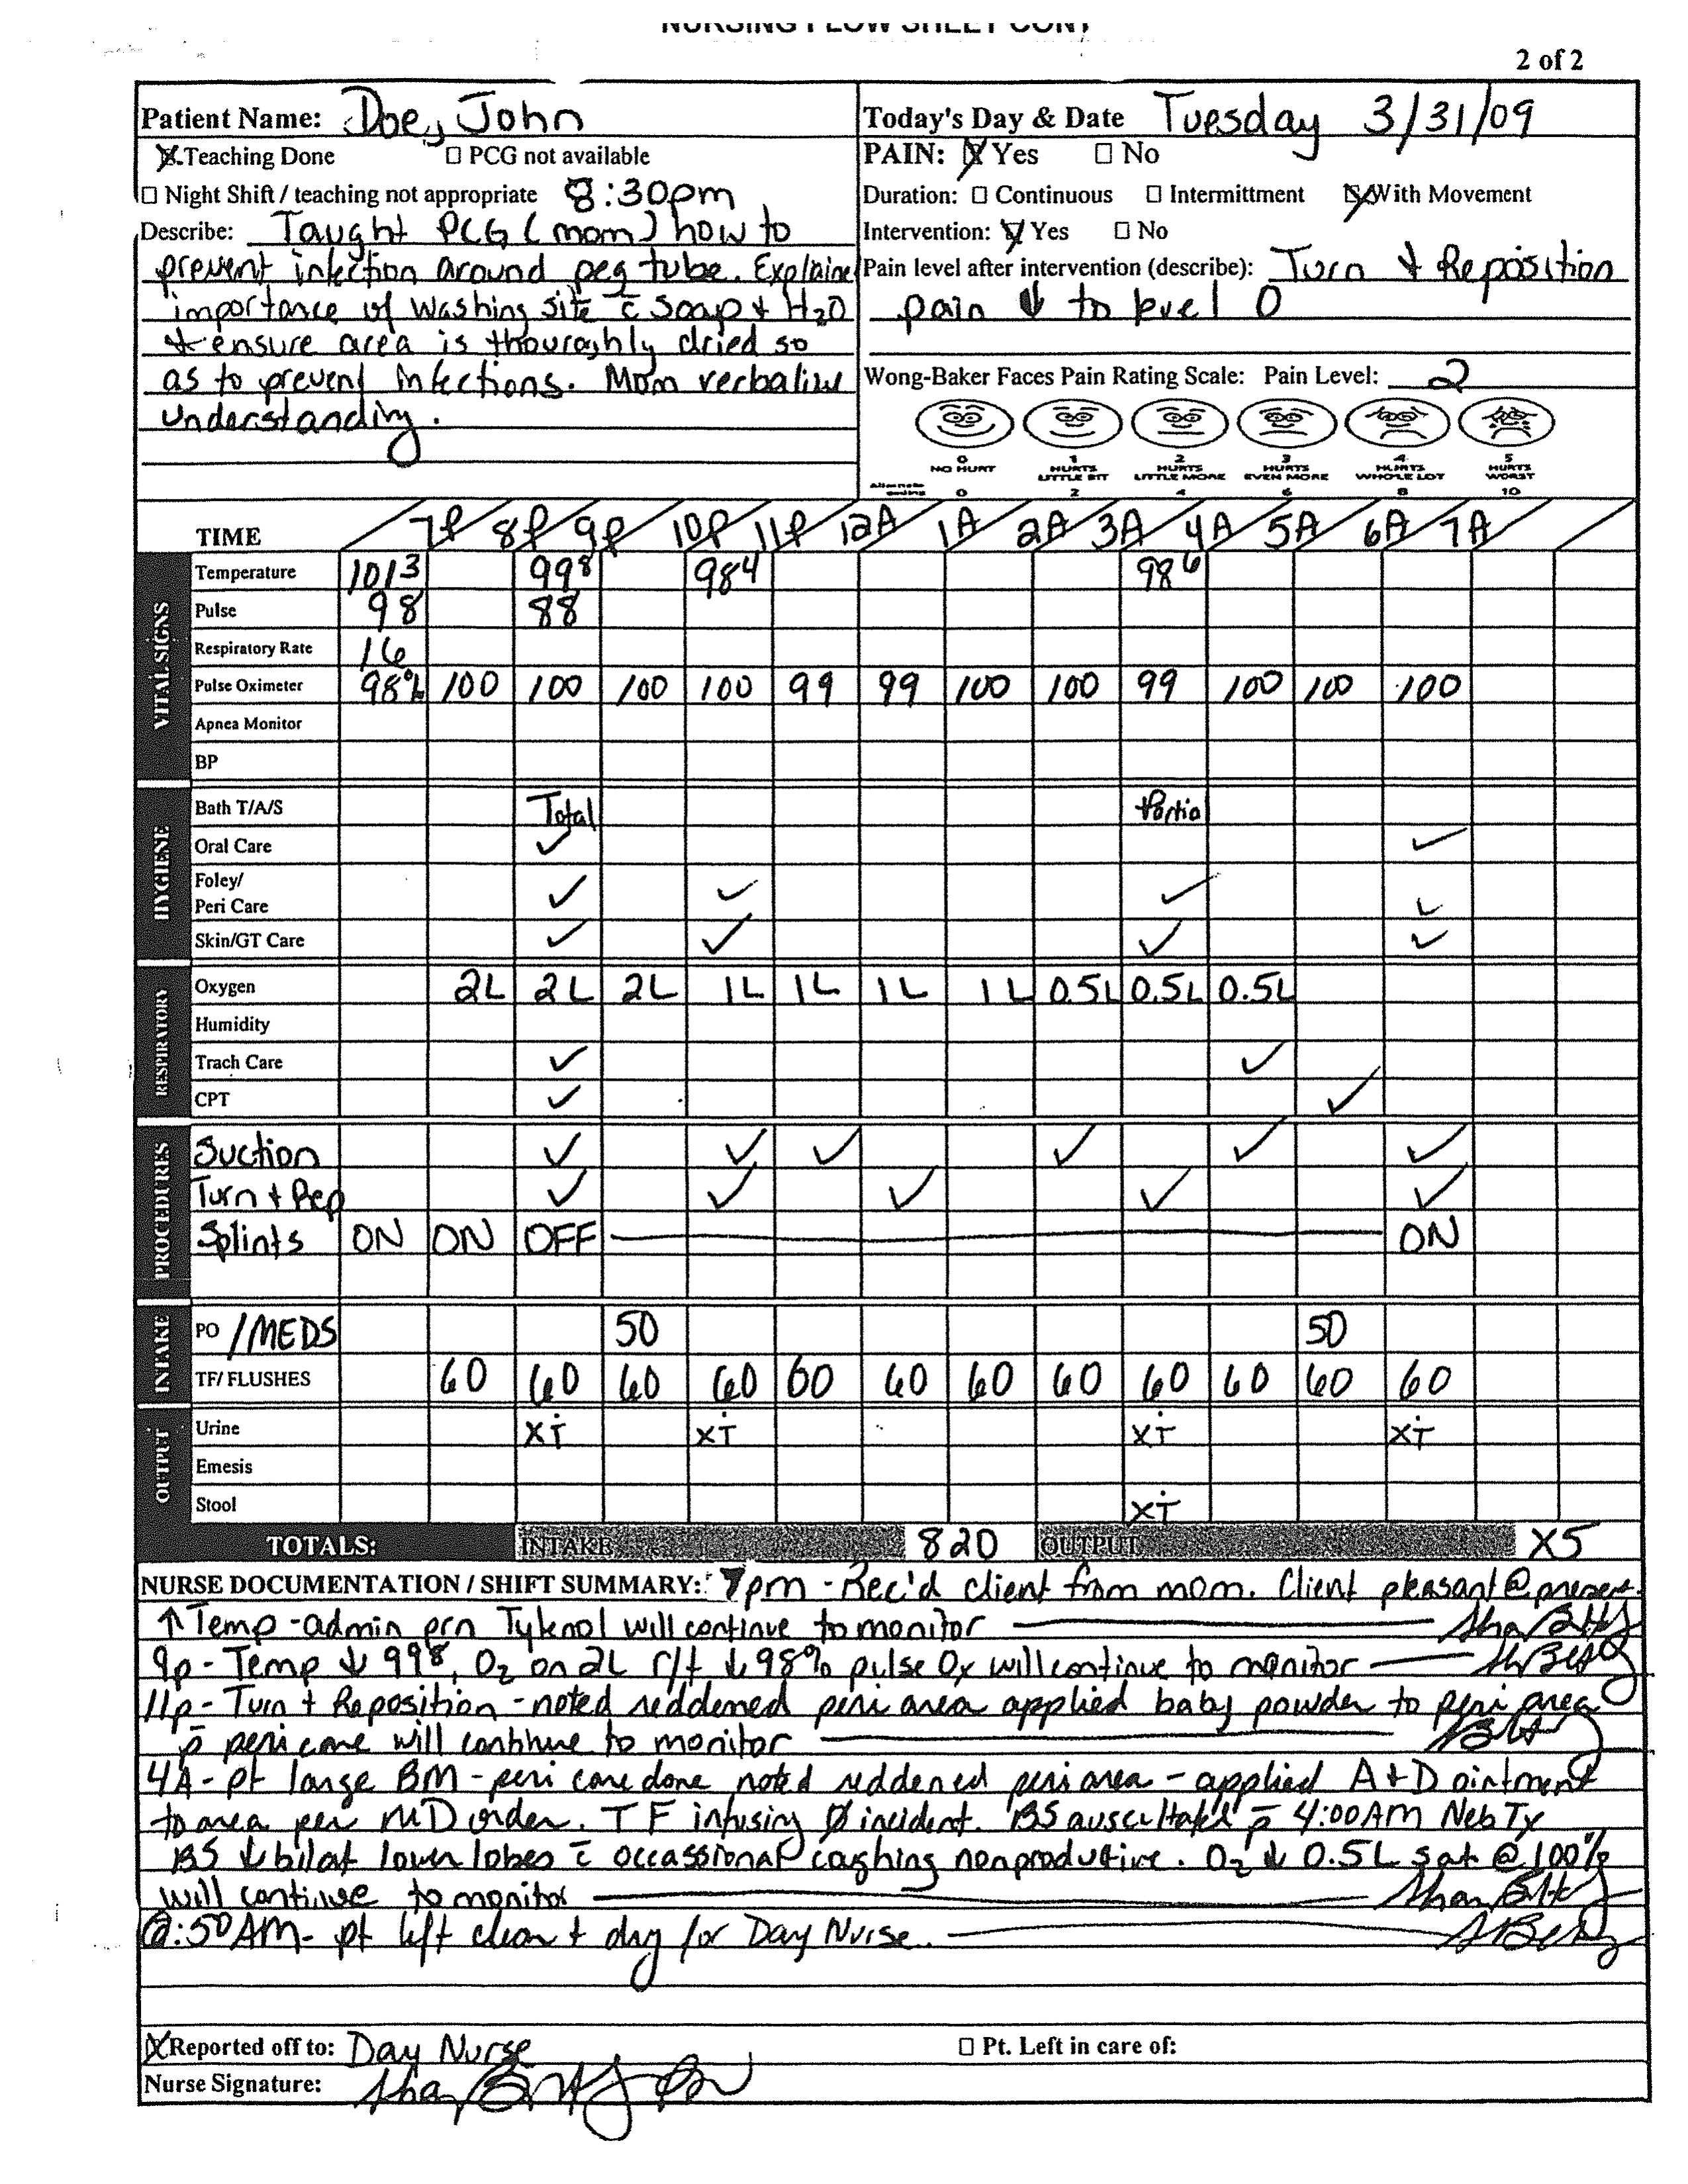 NURSING FLOW SHEET CONT
2 of 2
Patient Name: Doe, John
Today's Day & Date Tuesday 3/31/09
Teaching Done PCG not available
PAIN: Yes No
Night Shift / teaching not appropriate 8:30pm
Duration: Continuous Intermittment With Movement
Describe: Taught PCG (mom) how to
Intervention: Yes No
prevent infection around peg tube. Explaine
Pain level after intervention (describe): Turn + Reposition
importance of washing site c̄ soap + H2O
pain ↓ to level 0
+ ensure area is thouroghly dried so
as to prevent infections. Mom verbalize
Wong-Baker Faces Pain Rating Scale: Pain Level: 2
understanding.
0 1 2 3 4 5
NO HURT HURTS LITTLE BIT HURTS LITTLE MORE HURTS EVEN MORE HURTS WHOLE LOT HURTS WORST
0 2 4 6 8 10
TIME 7P 8P 9P 10P 11P 12A 1A 2A 3A 4A 5A 6A 7A
VITAL SIGNS
Temperature 101³ 99⁸ 98⁴ 98⁶
Pulse 98 88
Respiratory Rate 16
Pulse Oximeter 98% 100 100 100 100 99 99 100 100 99 100 100 100
Apnea Monitor
BP
HYGIENE
Bath T/A/S Total Partial
Oral Care ✓ ✓
Foley/
Peri Care ✓ ✓ ✓ ✓
Skin/GT Care ✓ ✓ ✓ ✓
RESPIRATORY
Oxygen 2L 2L 2L 1L 1L 1L 1L 0.5L 0.5L 0.5L
Humidity
Trach Care ✓ ✓
CPT ✓ ✓
PROCEDURES
Suction ✓ ✓ ✓ ✓ ✓ ✓
Turn + Rep ✓ ✓ ✓ ✓ ✓
Splints ON ON OFF ON
INTAKE
PO /MEDS 50 50
TF/ FLUSHES 60 60 60 60 60 60 60 60 60 60 60 60
OUTPUT
Urine xi xi xi xi
Emesis
Stool xi
TOTALS: INTAKE 820 OUTPUT X5
NURSE DOCUMENTATION / SHIFT SUMMARY: 7pm - Rec'd client from mom. Client pleasant @ present.
↑ Temp - admin prn Tylenol will continue to monitor
9p - Temp ↓ 99⁸, O2 on 2L r/t ↓ 98% pulse Ox will continue to monitor
11p - Turn + Reposition - noted reddened peri area applied baby powder to peri area
p̄ peri care will continue to monitor
4A - pt large BM - peri care done noted reddened peri area - applied A+D ointment
to area per MD order. TF infusing Ø incident. BS auscultated p̄ 4:00AM Neb Tx
BS ↓ bilat lower lobes c̄ occassional coughing nonproductive. O2 ↓ 0.5L sat @ 100%
will continue to monitor
6:50AM - pt left clean + dry for Day Nurse.
Reported off to: Day Nurse
Pt. Left in care of:
Nurse Signature: